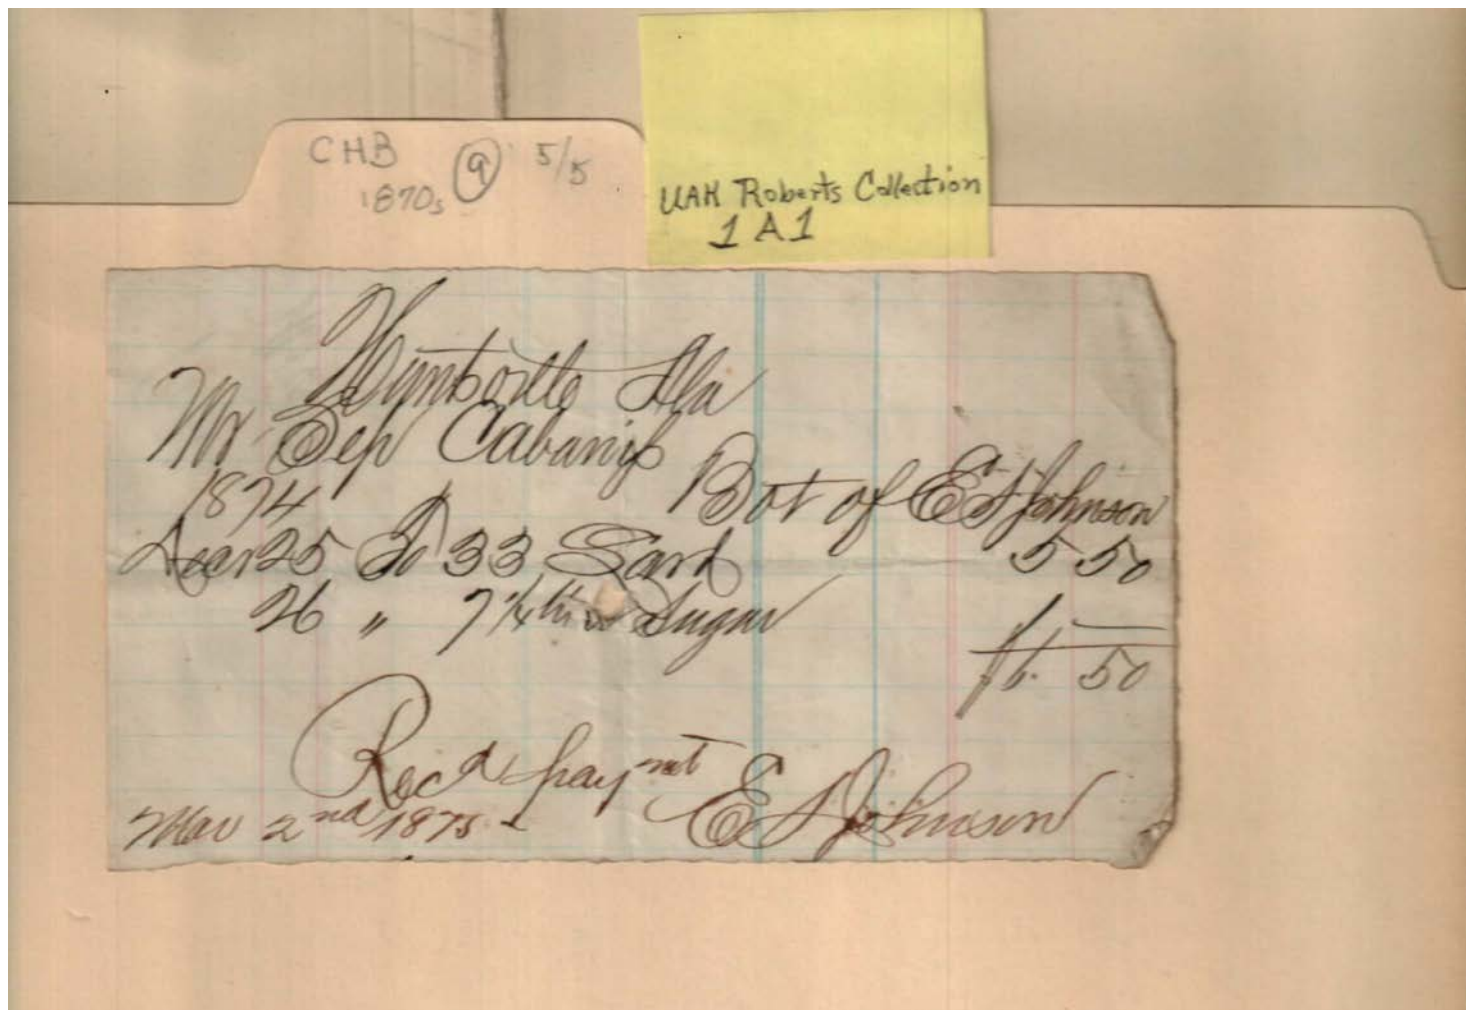 CHB 9 5/5
1870s
UAH Roberts Collection
1A1
Huntsville Ala
Mr Sep Cabaniss
1874 Bot of E S Johnson
Dec 25 To 33 Lard 5 50
26 " 7 1/4 Sugar 1 —
$6. 50
Recd paymt
Mar 2nd 1875 E S Johnson